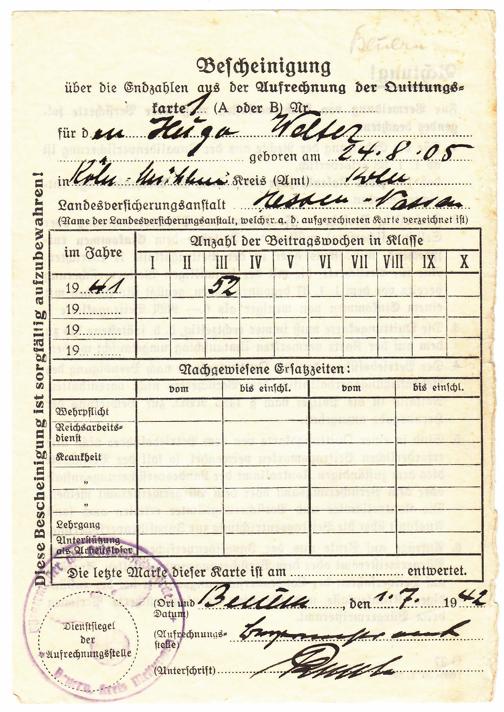 Bescheinigung
über die Endzahlen aus der Aufrechnung der Quittungs-
karte 1 (A oder B) Nr.
für den Hugo Welter
geboren am 24.8.05
in Köln-Mülheim Kreis (Amt) Köln
Landesversicherungsanstalt Hessen-Nassau
(Name der Landesversicherungsanstalt, welcher q. d. aufgerechneten Karte verzeichnet ist)
im Jahre
Anzahl der Beitragswochen in Klasse
I II III IV V VI VII VIII IX X
19 41 52
19
19
19
Nachgewiesene Ersatzzeiten:
vom bis einschl. vom bis einschl.
Wehrpflicht
Reichsarbeits-
dienst
Krankheit
"
"
Lehrgang
Unterstützung
als Arbeitsloser
Die letzte Marke dieser Karte ist am entwertet.
(Ort und
Datum) , den 1.7. 1942
(Aufrechnungs-
stelle)
(Unterschrift)
Dienstsiegel
der
Aufrechnungsstelle
Diese Bescheinigung ist sorgfältig aufzubewahren!